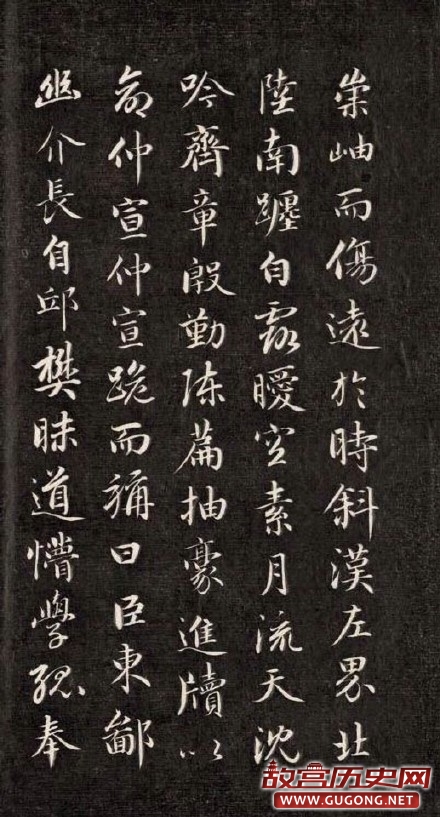 崇岫而傷遠於時斜漢左界北
陸南躔白露曖空素月流天沈
吟齊章殷勤陳篇抽豪進牘以
命仲宣仲宣跪而稱曰臣東鄙
幽介長自邱樊昧道懵學孤奉
故宫历史网
WWW.GUGONG.NET